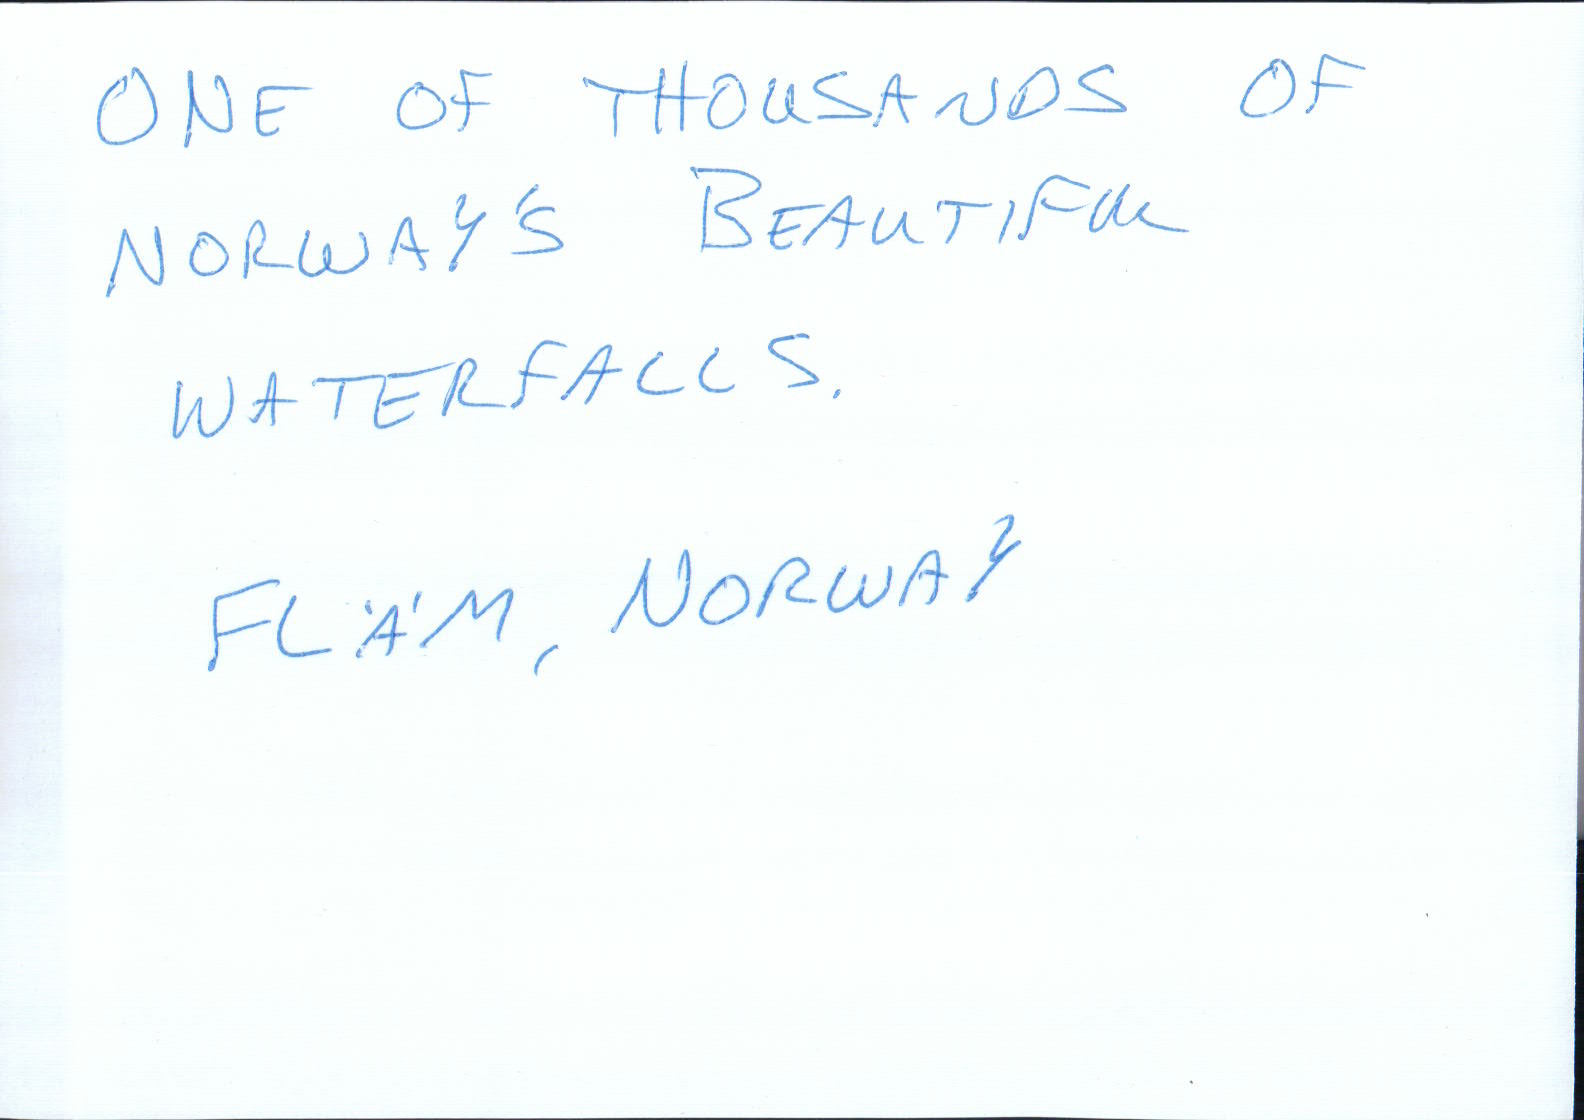 ONE OF THOUSANDS OF
NORWAY'S BEAUTIFUL
WATERFALLS.
FLÄM, NORWAY